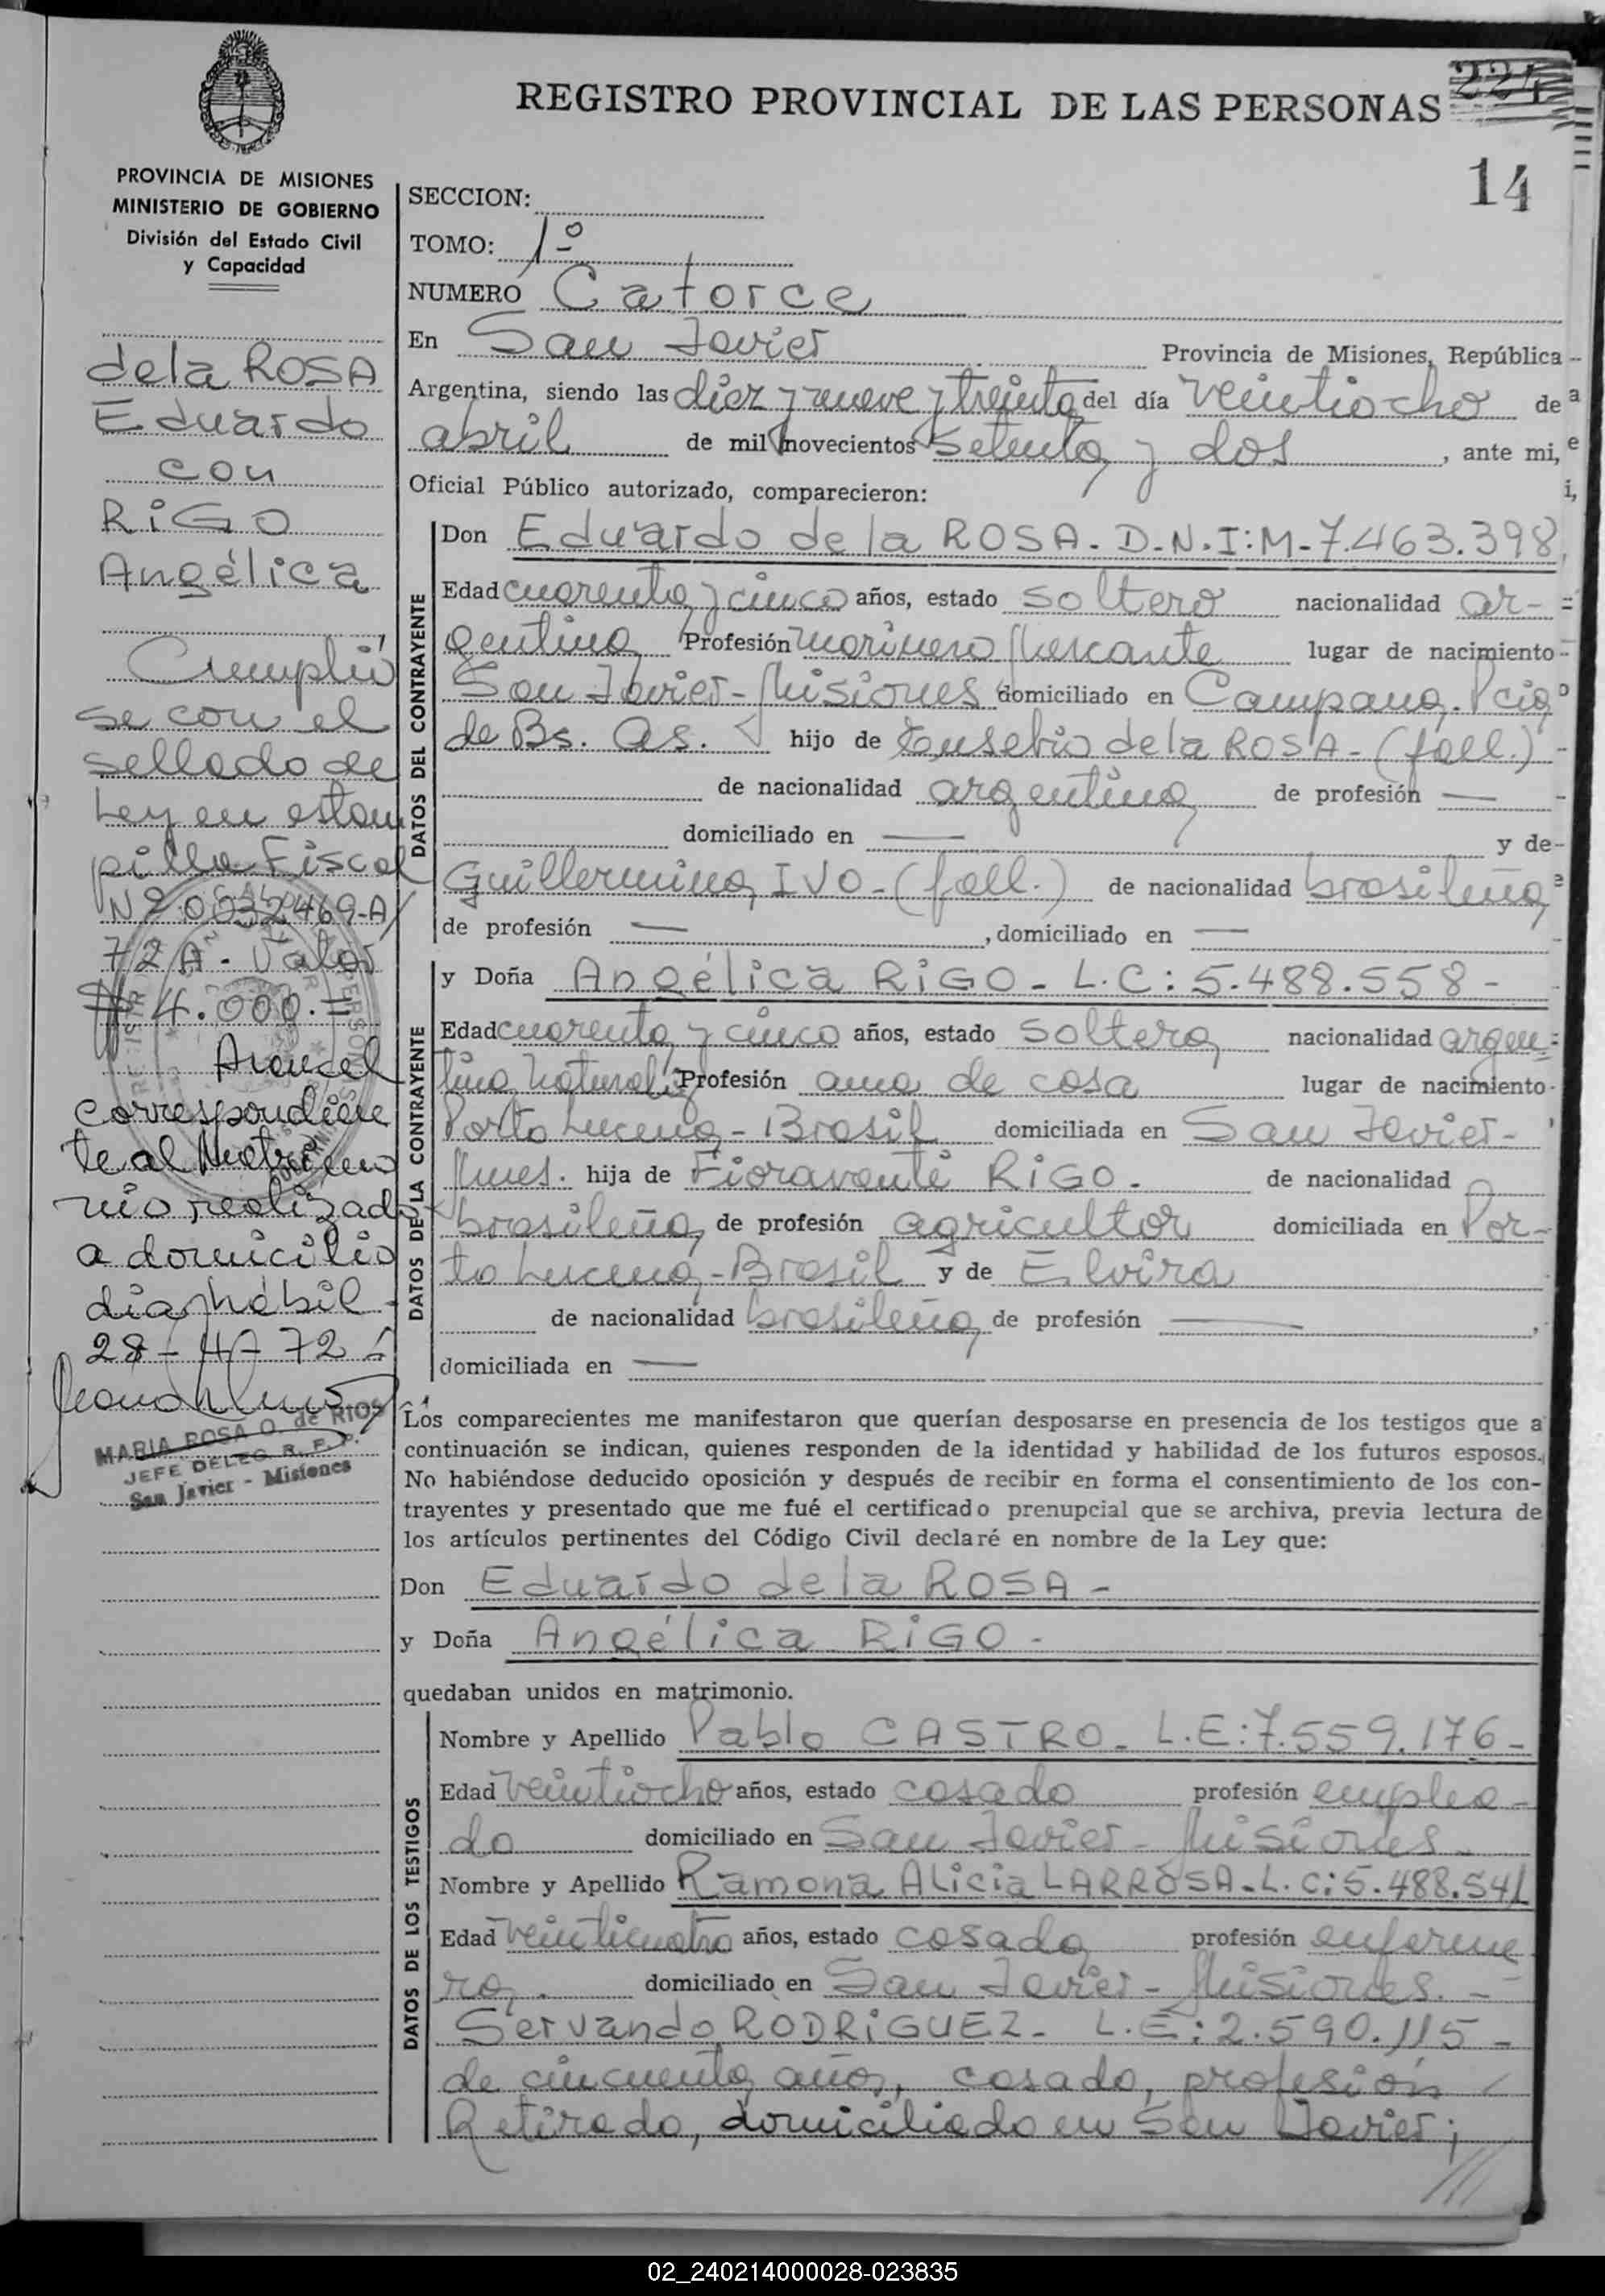 REGISTRO PROVINCIAL DE LAS PERSONAS
224
14
PROVINCIA DE MISIONES
MINISTERIO DE GOBIERNO
División del Estado Civil
y Capacidad
de la ROSA
Eduardo
con
RiGO
Angélica
Cumplió
se con el
sellado de
Ley en estam
pilla Fiscal
Nº 0032469-A/
72 A. Valor
$ 4.000.=
Arancel
correspondien
te al Matrimo
nio realizado
a domicilio
dia hábil.
28-4-72
MARIA ROSA O. de RIOS
JEFE DELEG. R. P. P.
San Javier - Misiones
SECCION:
TOMO: 1º
NUMERO Catorce
En San Javier Provincia de Misiones, República
Argentina, siendo las diez y nueve y treinta del día veintiocho de
abril de mil novecientos setenta y dos, ante mi,
Oficial Público autorizado, comparecieron:
DATOS DEL CONTRAYENTE
Don Eduardo de la ROSA. D.N.I:M-7.463.398
Edad cuarenta y cinco años, estado soltero nacionalidad ar-
gentina Profesión marinero Mercante lugar de nacimiento
San Javier-Misiones domiciliado en Campana. Pcia
de Bs. As. hijo de Eusebio de la ROSA-(fall.)
de nacionalidad argentina de profesión —
domiciliado en — y de
Guillermina IVO-(fall.) de nacionalidad brasileña
de profesión —, domiciliado en —
DATOS DE LA CONTRAYENTE
y Doña Angélica RiGO - L.C: 5.488.558-
Edad cuarenta y cinco años, estado soltera nacionalidad argen
tina Natural. Profesión ama de casa lugar de nacimiento
Porto Lucena-Brasil domiciliada en San Javier-
Mnes. hija de Fioravante RiGO. de nacionalidad
brasileña de profesión agricultor domiciliada en Por-
to Lucena-Brasil y de Elvira
de nacionalidad brasileña de profesión —,
domiciliada en —
Los comparecientes me manifestaron que querían desposarse en presencia de los testigos que a
continuación se indican, quienes responden de la identidad y habilidad de los futuros esposos.
No habiéndose deducido oposición y después de recibir en forma el consentimiento de los con-
trayentes y presentado que me fué el certificado prenupcial que se archiva, previa lectura de
los artículos pertinentes del Código Civil declaré en nombre de la Ley que:
Don Eduardo de la ROSA-
y Doña Angélica RiGO-
quedaban unidos en matrimonio.
DATOS DE LOS TESTIGOS
Nombre y Apellido Pablo CASTRO. L.E:7.559.176-
Edad veintiocho años, estado casado profesión emplea-
do domiciliado en San Javier-Misiones-
Nombre y Apellido Ramona ALicia LARROSA.L.C:5.488.541
Edad veinticuatro años, estado casada profesión enferme
ra. domiciliado en San Javier-Misiones.-
Servando RODRiGUEZ- L.E:2.590.115-
de cincuenta años, casado, profesión
Retirado, domiciliado en San Javier;
02_240214000028-023835